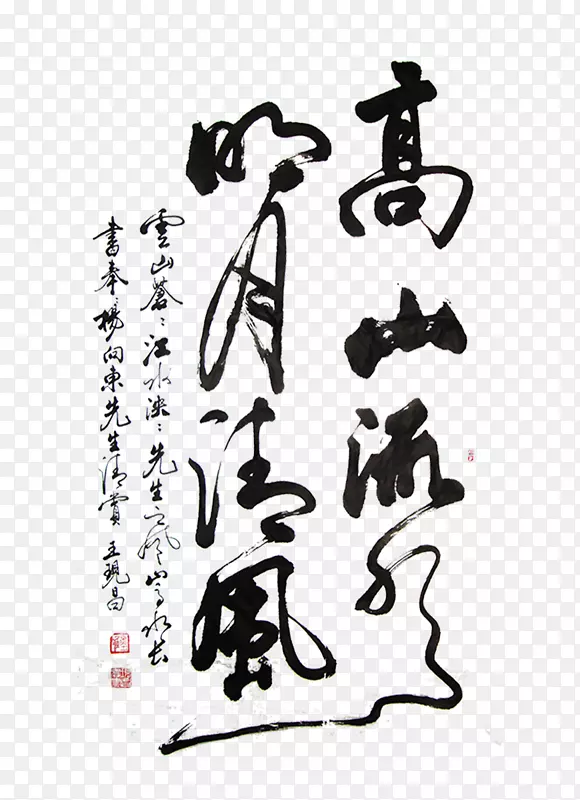 高山流水
明月清風
雲山蒼〻江水泱〻先生之風山高水長
書奉楊向東先生清賞 王現昌